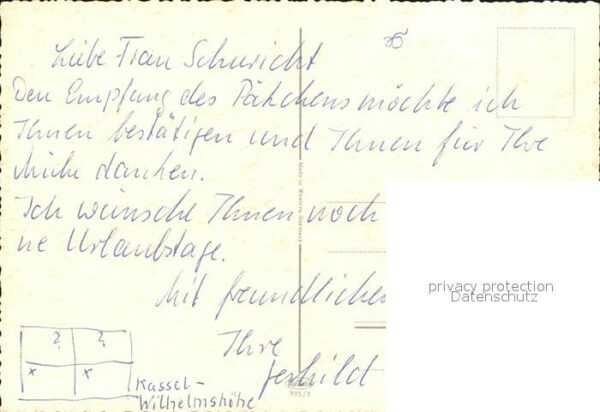 Liebe Frau Schuricht
Den Empfang des Päkchens möchte ich
Ihnen bestätigen und Ihnen für Ihre
Mühe danken.
Ich wünsche Ihnen noch
ne Urlaubstage.
Mit freundlichen
Ihre
Made in Western Germany
privacy protection
Datenschutz
? ?
x x
Kassel-
Wilhelmshöhe
975/7